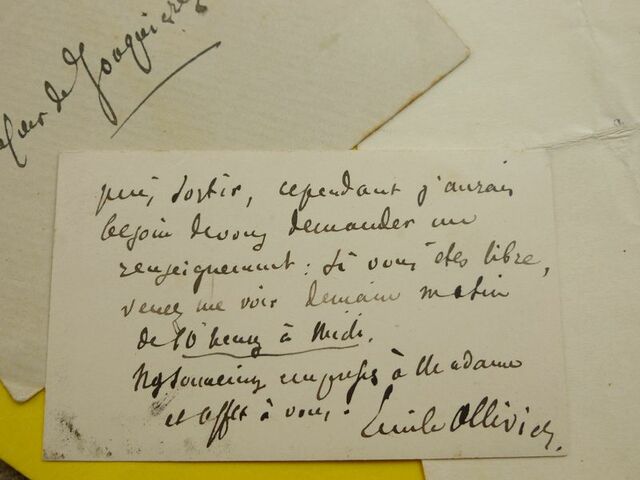 de Jonquières
puis sortir, cependant j'aurais
besoin de vous demander un
renseignement : si vous êtes libre,
venez me voir demain matin
de 10 heures à Midi.
empressés à Madame
et à vous.
Emile Ollivier.